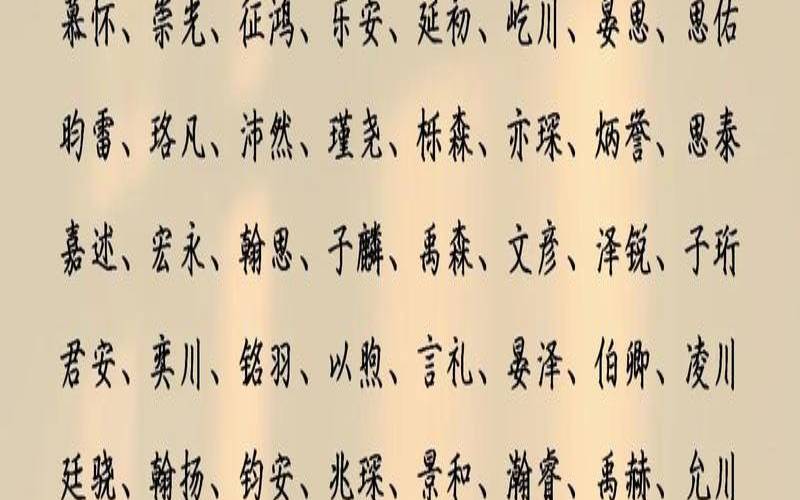 慕怀、崇光、征鸿、乐安、延初、屹川、晏思、思佑
昀雷、珞凡、沛然、瑾尧、栎森、亦琛、炳誉、思泰
嘉述、宏永、翰思、子麟、禹森、文彦、泽锐、子珩
君安、奕川、铭羽、以煦、言礼、晏泽、伯卿、凌川
廷骁、翰扬、钧安、兆琛、景和、瀚睿、禹赫、允川